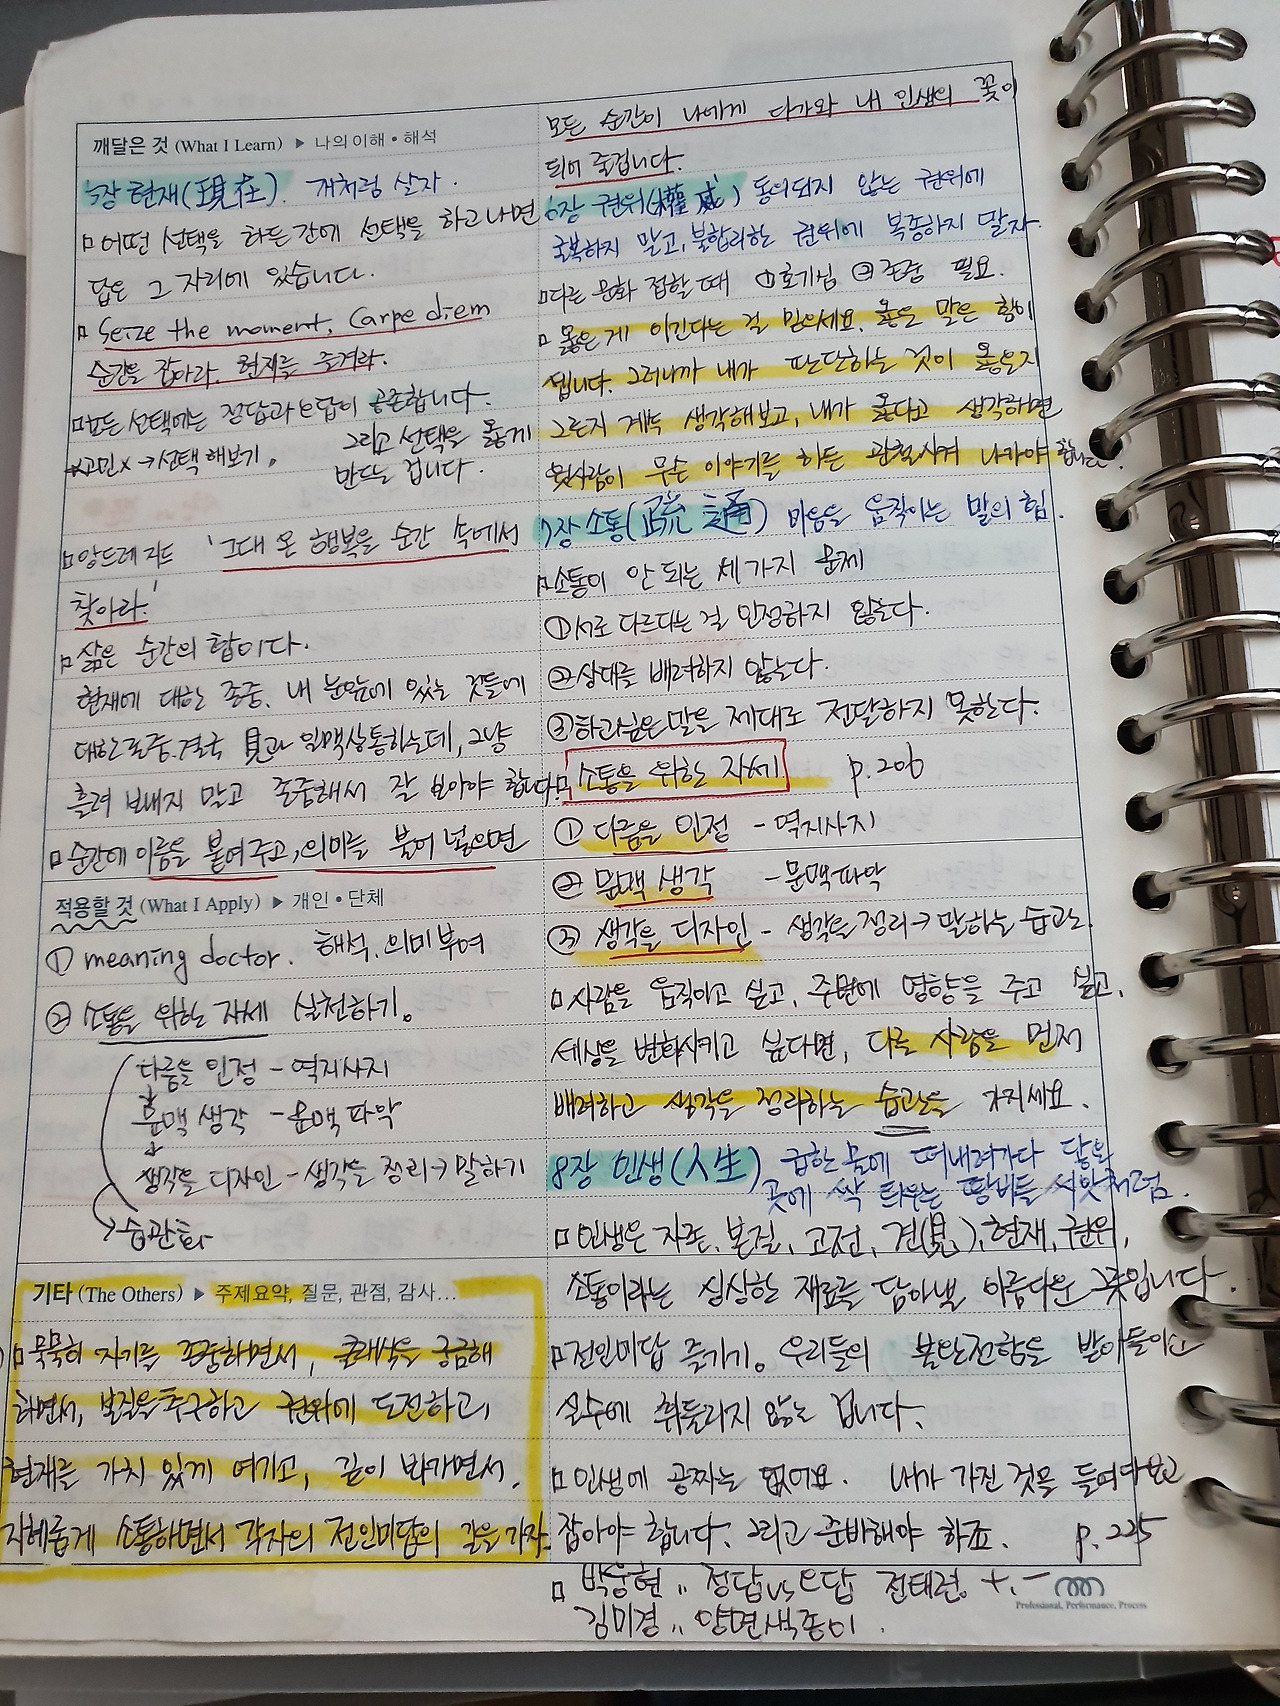 깨달은 것 (What I Learn) ▶ 나의 이해 • 해석
5장 현재(現在). 개처럼 살자.
□ 어떤 선택을 하든 간에 선택을 하고 나면
답은 그 자리에 있습니다.
□ Seize the moment, Carpe diem
순간을 잡아라. 현재를 즐겨라.
□ 모든 선택에는 정답과 오답이 공존합니다.
*고민x → 선택해보기. 그리고 선택을 옳게
만드는 겁니다.
□ 앙드레 지드 '그대 온 행복을 순간 속에서
찾아라.'
□ 삶은 순간의 합이다.
현재에 대한 존중. 내 눈앞에 있는 것들에
대한 존중. 결국 見과 일맥상통하는데, 그냥
흘려 보내지 말고 존중해서 잘 보아야 합니다.
□ 순간에 이름을 붙여주고, 의미를 불어 넣으면
적용할 것 (What I Apply) ▶ 개인 • 단체
① meaning doctor. 해석. 의미부여
② 소통을 위한 자세 실천하기.
다름을 인정 - 역지사지
문맥 생각 - 문맥 파악
생각을 디자인 - 생각을 정리 → 말하기
→ 습관화
기타 (The Others) ▶ 주제요약, 질문, 관점, 감사...
□ 묵묵히 자기를 존중하면서, 클래식을 궁금해
하면서, 본질을 추구하고 권위에 도전하고,
현재를 가치 있게 여기고, 깊이 봐가면서,
지혜롭게 소통하면서 각자의 전인미답의 길을 가자.
모든 순간이 나에게 다가와 내 인생의 꽃이
되어 줄겁니다.
6장 권위(權威) 동의되지 않는 권위에
굴복하지 말고, 불합리한 권위에 복종하지 말자.
□ 다른 문화 접할 때 ① 호기심 ② 존중 필요.
□ 옳은 게 이긴다는 걸 믿으세요. 옳은 말은 힘이
셉니다. 그러니까 내가 판단하는 것이 옳은지
그른지 계속 생각해보고, 내가 옳다고 생각하면
윗사람이 무슨 이야기를 하든 관철시켜 나가야 합니다.
7장 소통(疏通) 마음을 움직이는 말의 힘.
□ 소통이 안 되는 세가지 문제
① 서로 다르다는 걸 인정하지 않는다.
② 상대를 배려하지 않는다.
③ 하고싶은 말을 제대로 전달하지 못한다.
□ 소통을 위한 자세 p.206
① 다름을 인정 - 역지사지
② 문맥 생각 - 문맥파악
③ 생각을 디자인 - 생각을 정리 → 말하는 습관.
□ 사람을 움직이고 싶고, 주변에 영향을 주고 싶고,
세상을 변화시키고 싶다면, 다른 사람을 먼저
배려하고 생각을 정리하는 습관을 가지세요.
8장 인생(人生) 급한 물에 떠내려가다 닿은
곳에 싹 틔우는 땅버들 씨앗처럼.
□ 인생은 자존, 본질, 고전, 견(見), 현재, 권위,
소통이라는 싱싱한 재료를 담아낼 아름다운 그릇입니다.
□ 전인미답 즐기기. 우리들의 불완전함을 받아들이고
실수에 휘둘리지 않는 겁니다.
□ 인생에 공짜는 없어요. 내가 가진 것을 들여다보고
잡아야 합니다. 그리고 준비해야 하죠. p.225
□ 박웅현 〃 정답 vs 오답 전태련. +. -
김미경 〃 양면색종이.
Professional, Performance, Process